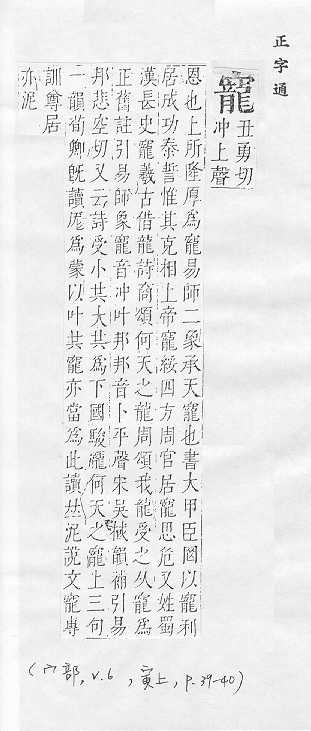 正字通
寵
丑勇切
冲上聲
恩也上所隆厚爲寵易師二象承天寵也書大甲臣罔以寵利
居成功泰誓惟其克相上帝寵綏四方周官居寵思危又姓蜀
漢長史寵羲古借龍詩商頌何天之龍周頌我龍受之从寵爲
正舊註引易師象寵音冲叶邦邦音卜平聲宋吳棫韻補引易
邦悲空切又云詩受小共大共爲下國駿龐何天之寵上三句
一韻荀卿旣讀厖爲蒙以叶共寵亦當爲此讀𠀤泥說文寵專
訓尊居
亦泥
(宀部, v.6, 寅上, p.39-40)